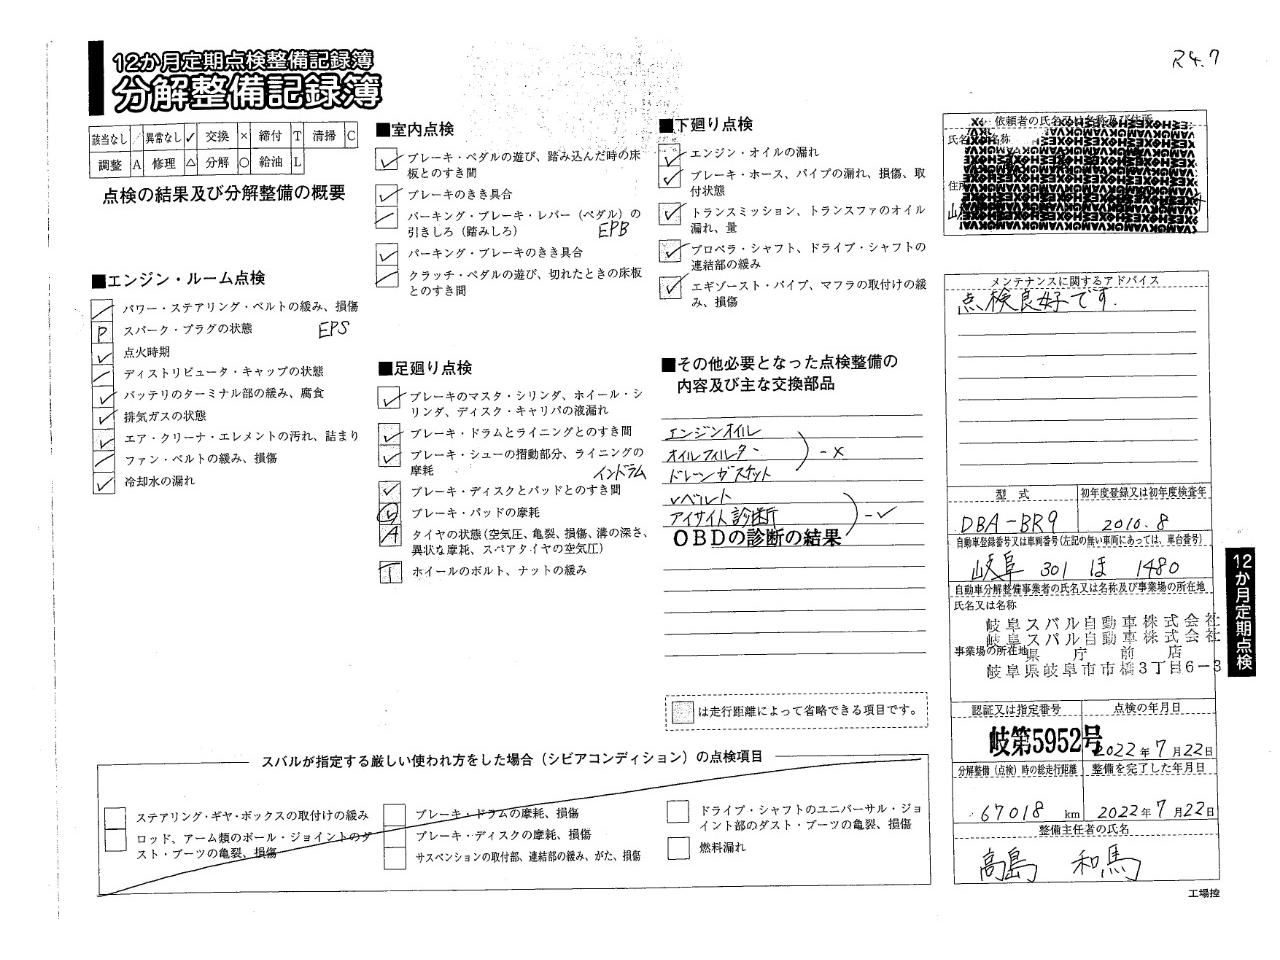 R4.7
12か月定期点検整備記録簿
分解整備記録簿
該当なし ／ 異常なし ✓ 交換 × 締付 T 清掃 C
調整 A 修理 △ 分解 ○ 給油 L
点検の結果及び分解整備の概要
■エンジン・ルーム点検
パワー・ステアリング・ベルトの緩み、損傷
P スパーク・プラグの状態 EPS
✓ 点火時期
ディストリビュータ・キャップの状態
✓ バッテリのターミナル部の緩み、腐食
✓ 排気ガスの状態
✓ エア・クリーナ・エレメントの汚れ、詰まり
ファン・ベルトの緩み、損傷
✓ 冷却水の漏れ
■室内点検
✓ ブレーキ・ペダルの遊び、踏み込んだ時の床
板とのすき間
✓ ブレーキのきき具合
パーキング・ブレーキ・レバー（ペダル）の
引きしろ（踏みしろ） EPB
✓ パーキング・ブレーキのきき具合
クラッチ・ペダルの遊び、切れたときの床板
とのすき間
■足廻り点検
✓ ブレーキのマスタ・シリンダ、ホイール・シ
リンダ、ディスク・キャリパの液漏れ
✓ ブレーキ・ドラムとライニングとのすき間
✓ ブレーキ・シューの摺動部分、ライニングの
摩耗 インドラム
✓ ブレーキ・ディスクとパッドとのすき間
ブレーキ・パッドの摩耗
A タイヤの状態（空気圧、亀裂、損傷、溝の深さ、
異状な摩耗、スペアタイヤの空気圧）
T ホイールのボルト、ナットの緩み
■下廻り点検
✓ エンジン・オイルの漏れ
✓ ブレーキ・ホース、パイプの漏れ、損傷、取
付状態
✓ トランスミッション、トランスファのオイル
漏れ、量
✓ プロペラ・シャフト、ドライブ・シャフトの
連結部の緩み
✓ エギゾースト・パイプ、マフラの取付けの緩
み、損傷
■その他必要となった点検整備の
内容及び主な交換部品
エンジンオイル
オイルフィルター －×
ドレーンガスケット
Vベルト
アイサイト診断 －✓
OBDの診断の結果
は走行距離によって省略できる項目です。
スバルが指定する厳しい使われ方をした場合（シビアコンディション）の点検項目
ステアリング・ギヤ・ボックスの取付けの緩み
ロッド、アーム類のボール・ジョイントのダ
スト・ブーツの亀裂、損傷
ブレーキ・ドラムの摩耗、損傷
ブレーキ・ディスクの摩耗、損傷
サスペンションの取付部、連結部の緩み、がた、損傷
ドライブ・シャフトのユニバーサル・ジョ
イント部のダスト・ブーツの亀裂、損傷
燃料漏れ
依頼者の氏名又は名称及び住所
メンテナンスに関するアドバイス
点検良好です.
型式 初年度登録又は初年度検査年
DBA-BR9 2010.8
自動車登録番号又は車両番号（左記の無い車両にあっては、車台番号）
岐阜 301 ほ 1480
自動車分解整備事業者の氏名又は名称及び事業場の所在地
氏名又は名称
岐阜スバル自動車株式会社
岐阜スバル自動車株式会社
事業場の所在地 県庁前店
岐阜県岐阜市市橋3丁目6－3
認証又は指定番号 点検の年月日
岐第5952号 2022年7月22日
分解整備（点検）時の総走行距離 整備を完了した年月日
67018 km 2022年7月22日
整備主任者の氏名
高島 和馬
工場控
12か月定期点検